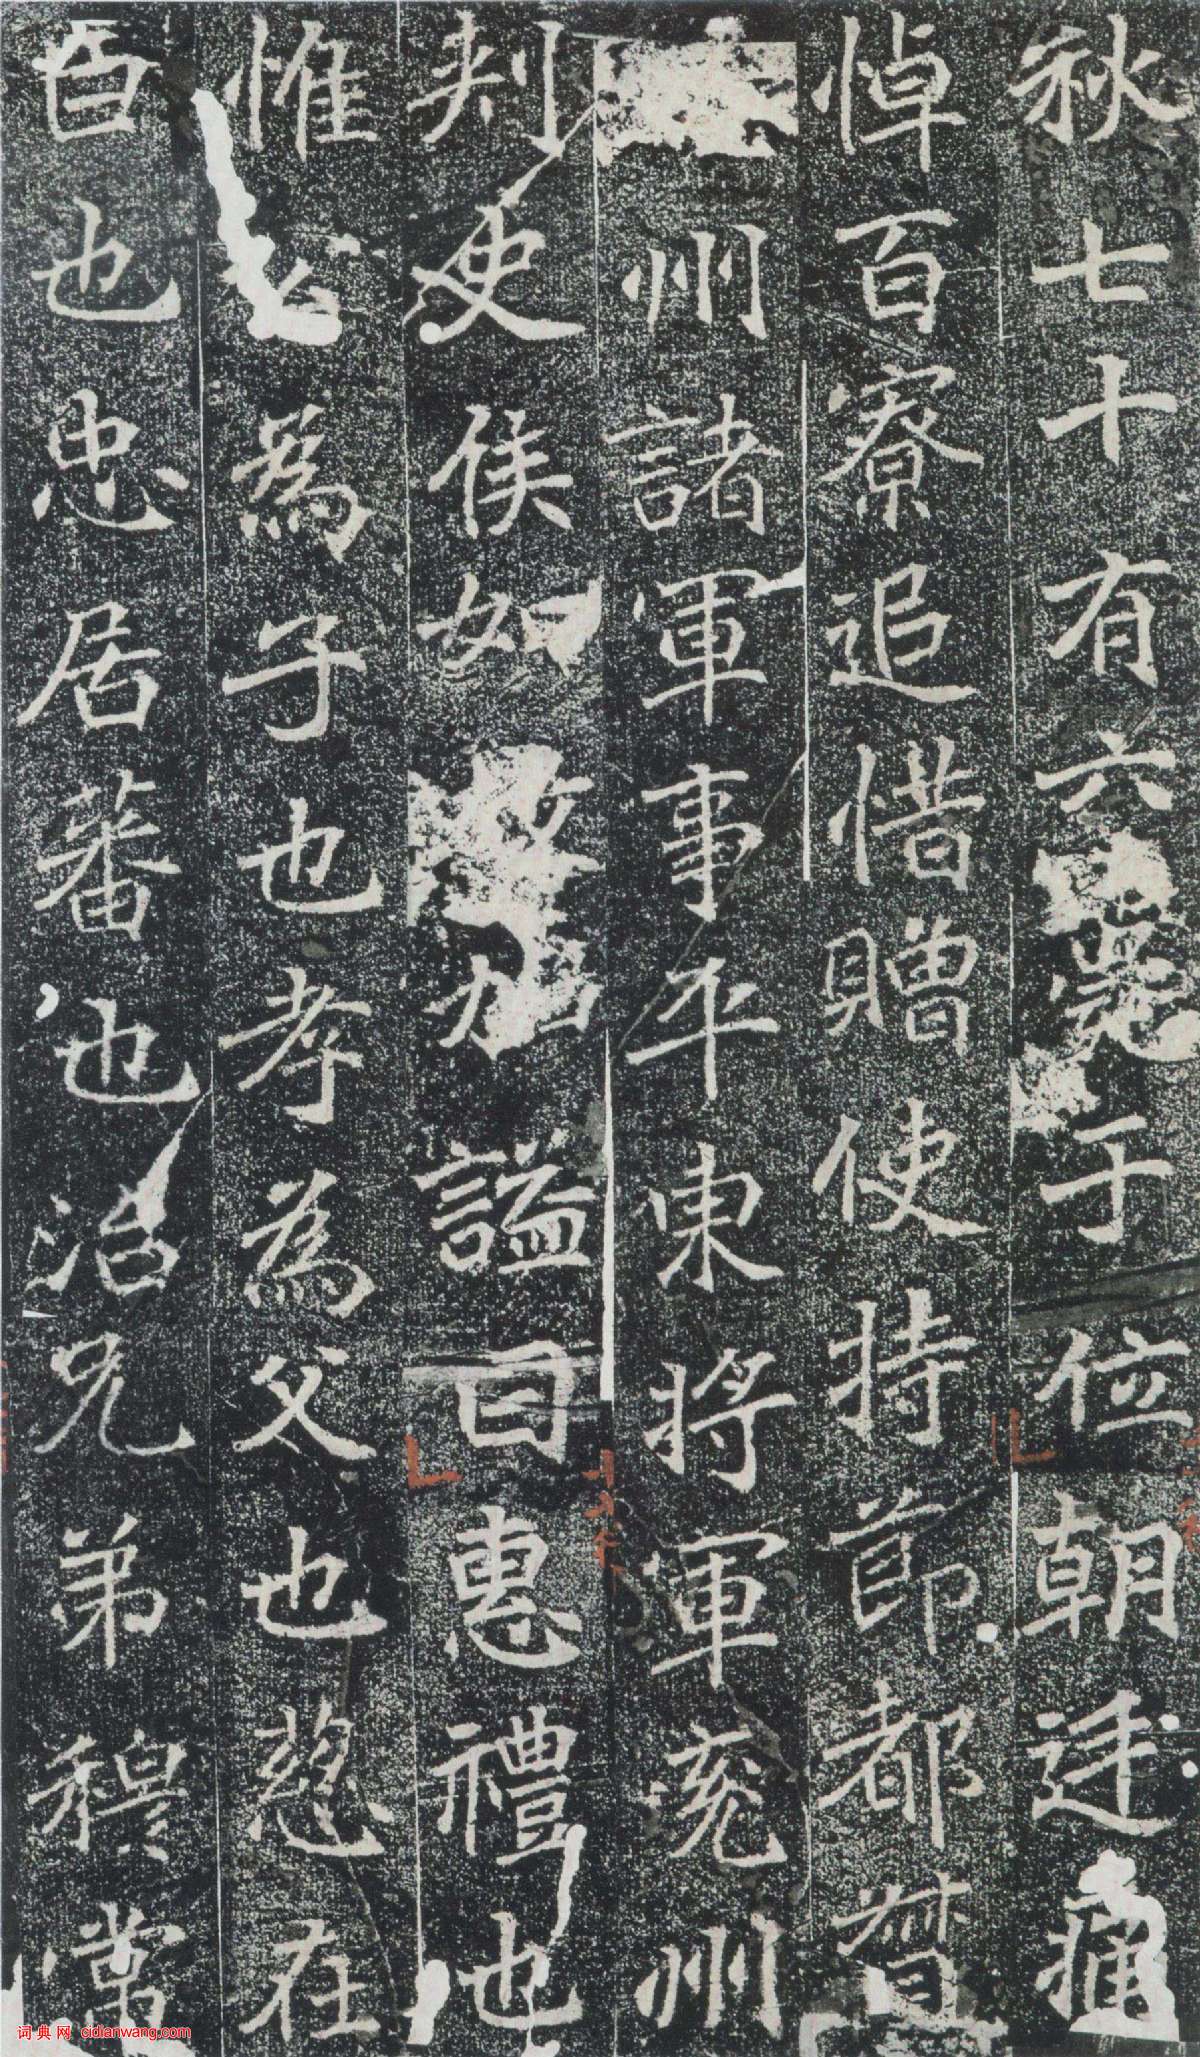 秋七十有六薨于位朝廷痛
悼百寮追惜贈使持節都督
州諸軍事平東將軍兖州
刺史侯如故加謚曰惠禮也
惟為子也孝為父也慈在
臣也忠居蕃也治兄弟穆常
词典网 cidianwang.com